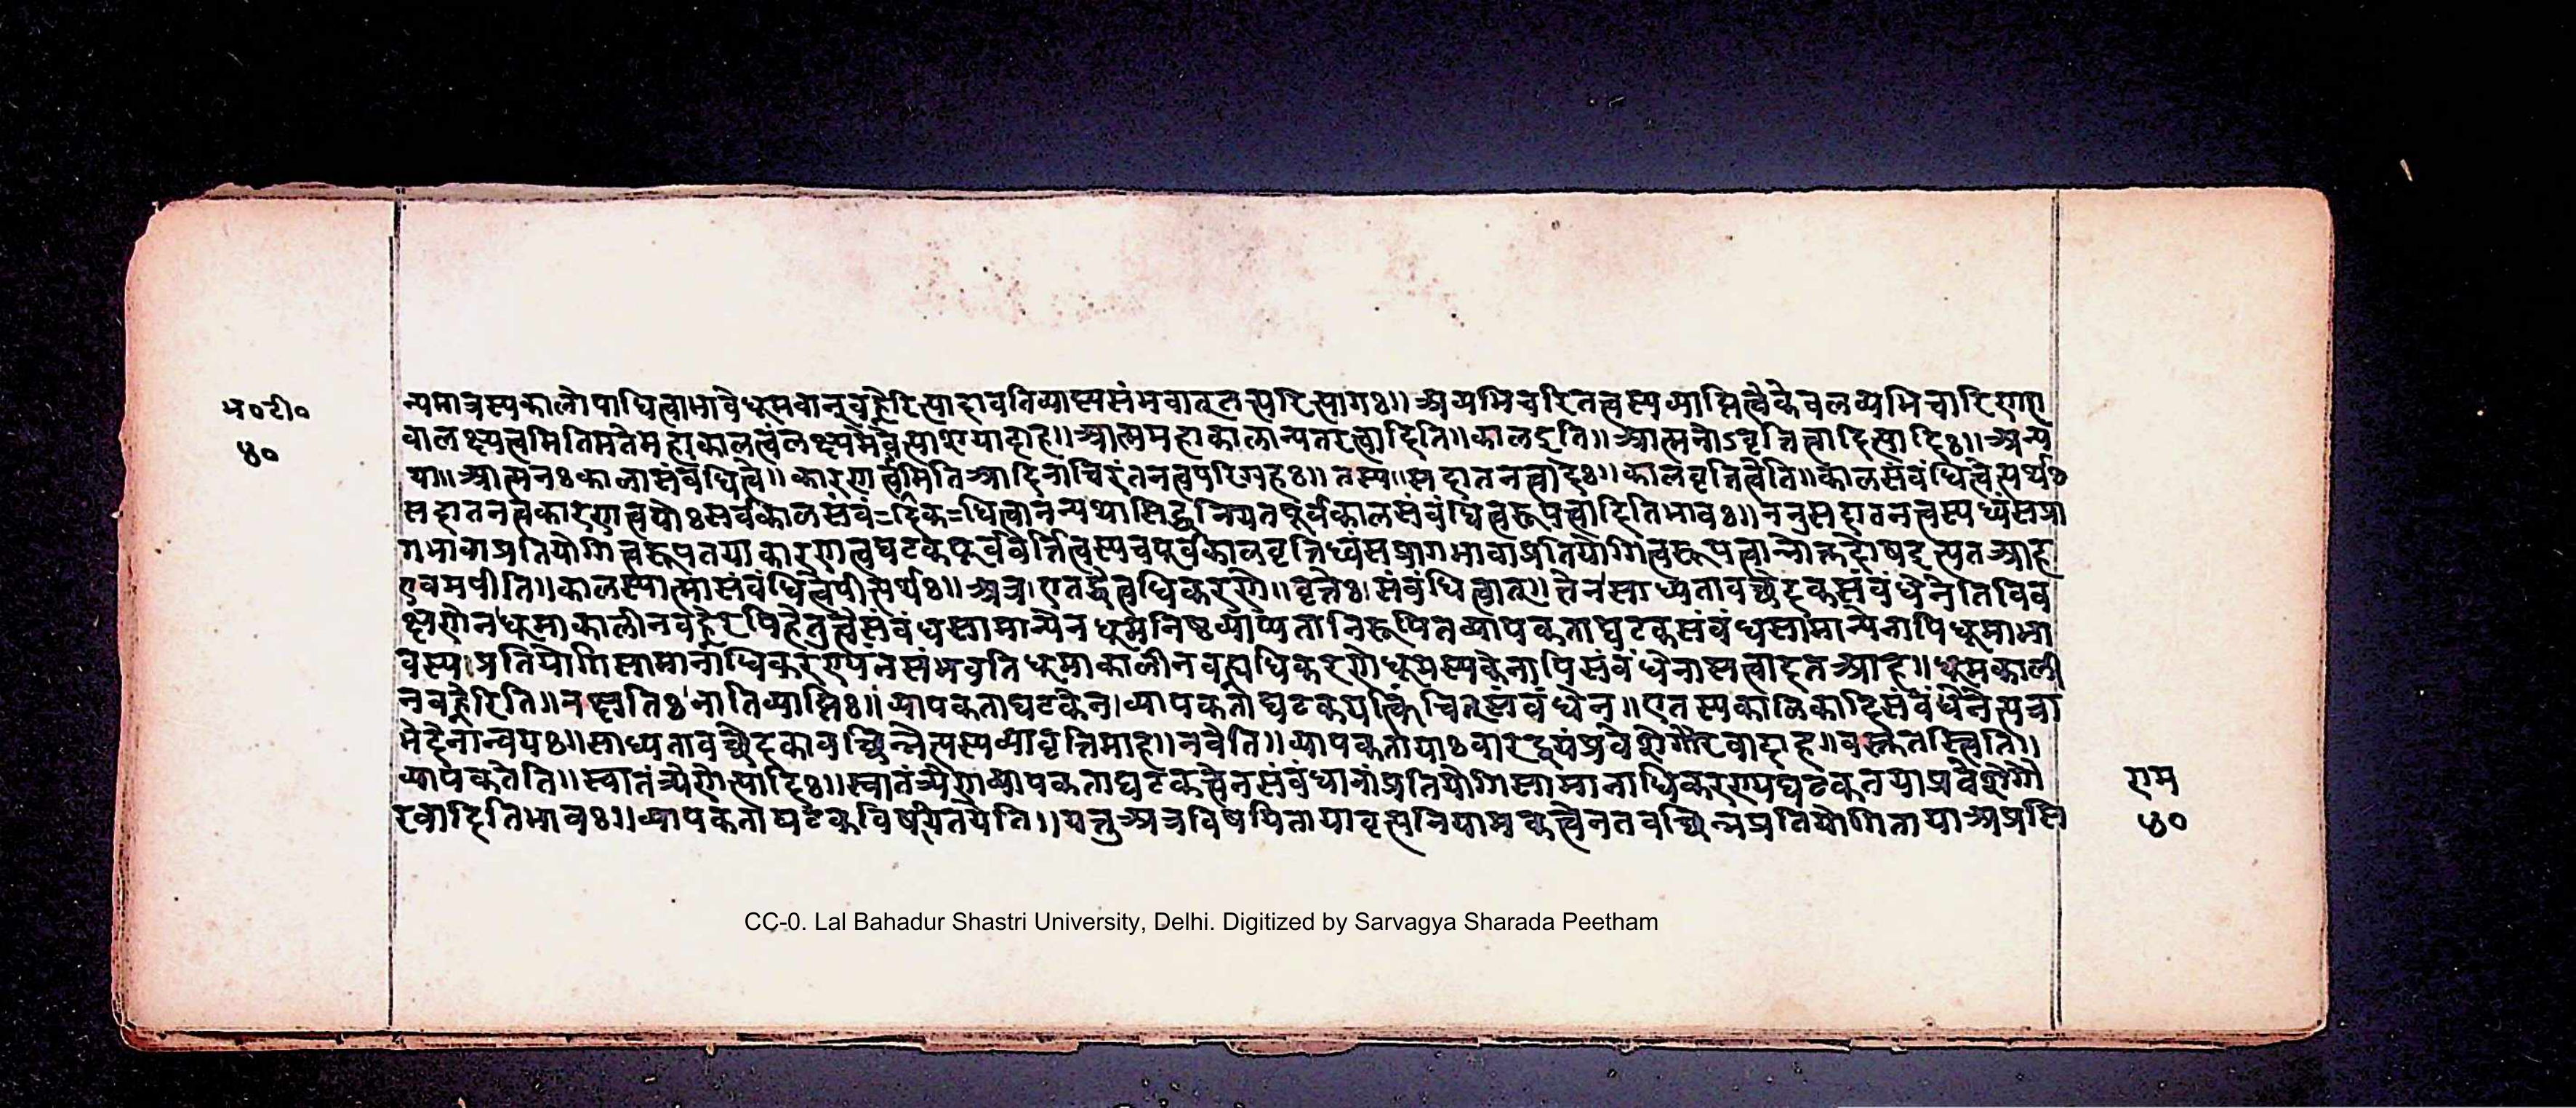 भ०टी०
४०
न्यमात्रस्यकालोपाधित्वाभावेधूमवान्वह्नेरित्यादावतिव्याप्त्यसंभवात्तत्परित्यागः॥ अव्यभिचरितत्वस्यव्याप्तित्वेकेवलव्यभिचारिण्यए
वालक्ष्यत्वमितिमतेमहाकालत्वंलक्ष्यमेवेत्याशयादाह॥आत्ममहाकालान्यतरत्वादिति॥कालइति॥आत्मनोऽवृत्तित्वादित्यादिः॥अन्य
था॥आत्मनःकालासंबंधित्वे॥कारणत्वमितिआदिनाचिरंतनत्वपरिग्रहः॥तस्य॥सदातनत्वादेः॥कालवृत्तित्वेति॥कालसंबंधित्वेत्यर्थः
सदातनत्वकारणत्वयोःसर्वकालसंबं=दिक=धित्वानन्यथासिद्धनियतपूर्वकालसंबंधित्वरूपत्वादितिभावः॥ननुसदातनत्वस्यध्वंसप्रा
गभावाप्रतियोगित्वरूपतयाकारणत्वघटकपूर्ववर्त्तित्वस्यचपूर्वकालवृत्तिध्वंसप्रागभावाप्रतियोगित्वरूपत्वान्नोक्तदोषइत्यतआह
एवमपीति॥कालस्यात्मासंबंधित्वेपीत्यर्थः॥अत्र।एतद्धेत्वधिकरणे॥वृत्तेः।संबंधित्वात्॥तेनसाध्यतावच्छेदकसंबंधेनेतिविव
क्षणेनधूमाकालीनवह्नेरपिहेतुत्वेसंबंधसामान्येनधूमनिष्ठव्याप्यतानिरूपितव्यापकताघटकसंबंधसामान्येनापिधूमाभा
वस्य।प्रतियोगिसामानाधिकरण्यंनसंभवतिधूमाकालीनवह्न्यधिकरणेधूमस्यकेनापिसंबंधेनासत्वादतआह॥धूमकाली
नवह्नेरिति॥नक्षतिःनातिव्याप्तिः॥व्यापकताघटकेन।व्यापकताघटकयत्किंचित्संबंधेन॥एतस्यकालिकादिसंबंधेनेत्यचा
भेदेनान्वयः॥साध्यतावच्छेदकावच्छिन्नेत्यस्यव्यावृत्तिमाह॥नवेति॥व्यापकतायाःवारद्वयंप्रवेशेगौरवादाह॥वस्तुतस्त्विति॥
व्यापकतेति॥स्वातंत्र्येणेत्यादिः॥स्वातंत्र्येणव्यापकताघटकत्वेनसंबंधानांप्रतियोगिसामानाधिकरण्यघटकतयाप्रवेशेगौ
रवादितिभावः॥व्यापकताघटकविषयितयेति॥यत्तुअत्रविषयितायावृत्त्यनियामकत्वेनतदवच्छिन्नप्रतियोगितायाअप्रसि
राम
४०
CC-0. Lal Bahadur Shastri University, Delhi. Digitized by Sarvagya Sharada Peetham